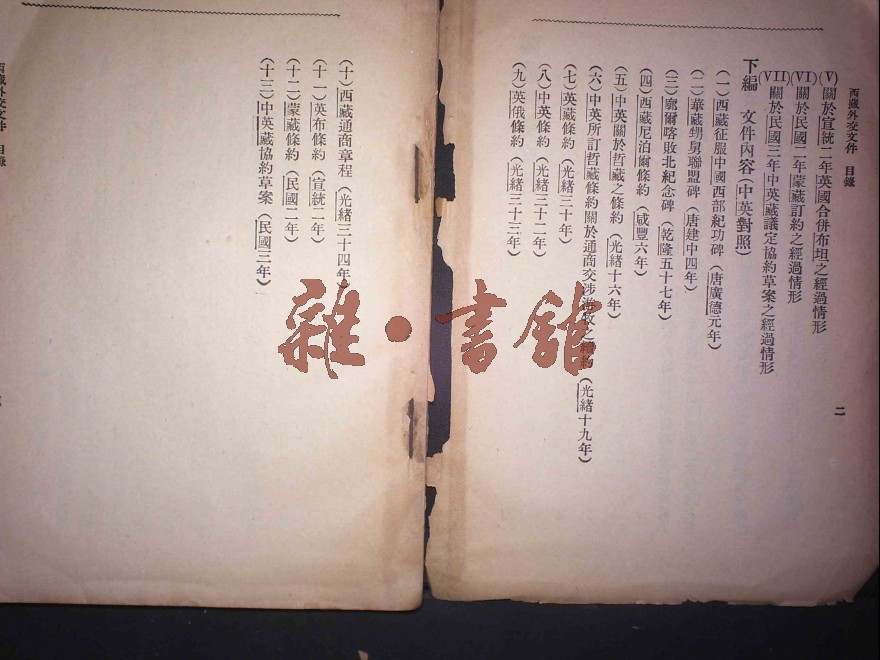 西藏外交文件　目錄
二
(V)關於宣統二年英國合併布坦之經過情形
(VI)關於民國二年蒙藏訂約之經過情形
(VII)關於民國三年中英藏議定協約草案之經過情形
下編　文件內容(中英對照)
(一)西藏征服中國西部紀功碑(唐廣德元年)
(二)華藏甥舅聯盟碑(唐建中四年)
(三)廓爾喀敗北紀念碑(乾隆五十七年)
(四)西藏尼泊爾條約(咸豐六年)
(五)中英關於哲藏之條約(光緒十六年)
(六)中英所訂哲藏條約關於通商交涉游牧之續約(光緒十九年)
(七)英藏條約(光緒三十年)
(八)中英條約(光緒三十二年)
(九)英俄條約(光緒三十三年)
(十)西藏通商章程(光緒三十四年)
(十一)英布條約(宣統二年)
(十二)蒙藏條約(民國二年)
(十三)中英藏協約草案(民國三年)
西藏外交文件　目錄
雜·書館